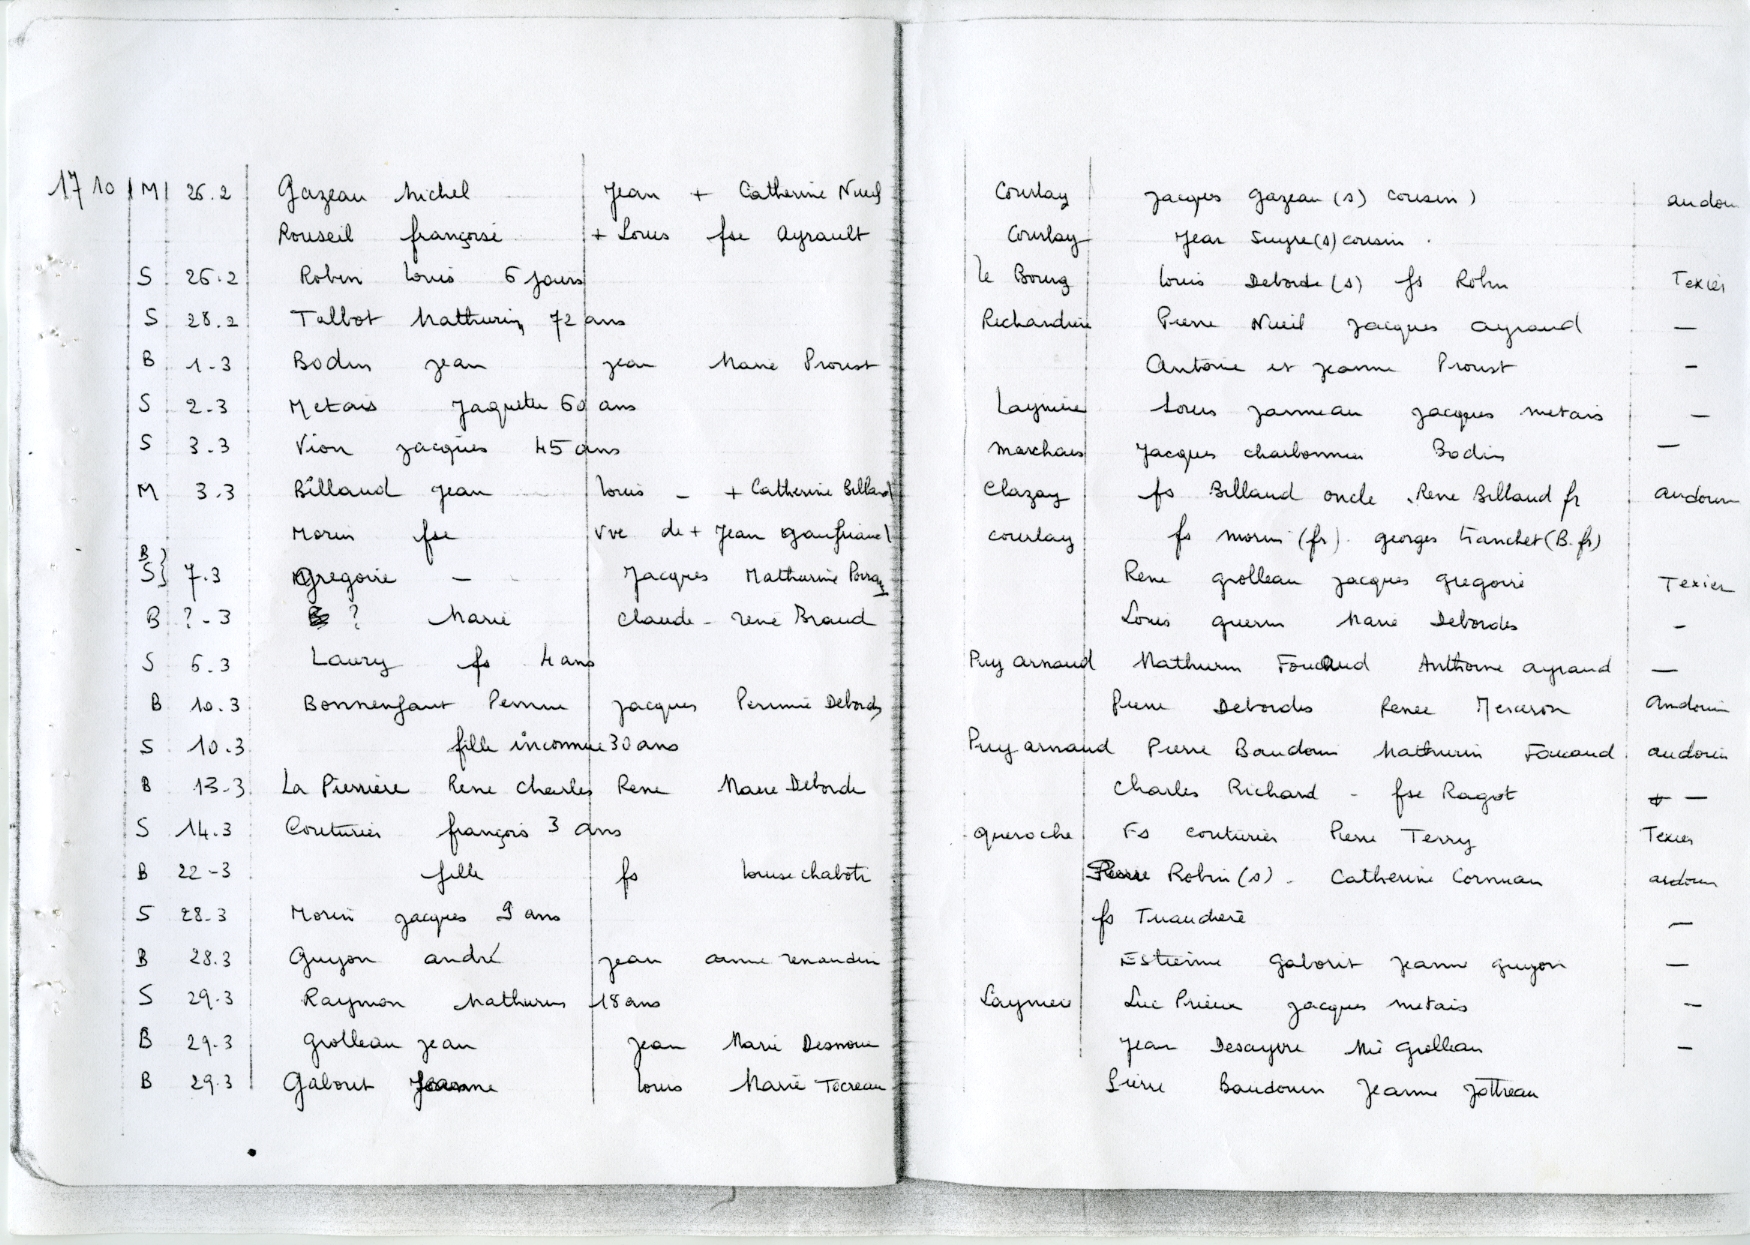 1710 M 26.2 Gazeau Michel Jean + Catherine Nueil Courlay Jacques Gazeau (s) cousin) audou
Rouseil françoise + Louis fse Ayrault Courlay Jean Suyre (s) cousin.
S 26.2 Robin Louis 6 jours le Bourg Louis Deborde (s) fs Robin Texier
S 28.2 Talbot Mathurin 72 ans Richardière Pierre Nueil Jacques ayraud —
B 1.3 Bodin jean jean Marie Proust Antoine et jeanne Proust —
S 2.3 Metais Jaquette 60 ans Laynière Louis janneau jacques metais —
S 3.3 Vion jacques 45 ans marchais Jacques charbonnier Bodin —
M 3.3 Billaud jean louis - + Catherine Billaud Clazay fs Billaud oncle . Rene Billaud fr audouin
Morin fse vve de + Jean courlay fs morin (fr). georges tranchet (B. fr)
B S} 7.3 gregoire — Jacques Mathurine Rene grolleau jacques gregoire Texier
B ?-3 ? Marie claude - rené Braud Louis guerin Marie Debordes —
S 6.3 Laury fs 4 ans Puy arnaud Mathurin Foucaud Anthoine ayraud —
B 10.3 Bonnenfant Perrine jacques Perrine Debords Pierre Debordes Renee Merceron Andouin
S 10.3 fille inconnue 30 ans Puy arnaud Pierre Baudouin Mathurin Foucaud audouin
B 13-3 La Pierrière Rene Charles Rene Marie Deborde Charles Richard - fse Ragot —
S 14.3 Couturier françois 3 ans queroche Fs couturier Pierre Terry Texier
B 22-3 fille fs louise chabot Pierre Robin (s) . Catherine audouin
S 28.3 Morin jacques 9 ans fs —
B 28.3 Guyon andré jean anne renaudin Estienne Gaborit jeanne guyon —
S 29.3 Raymon Mathurin 18 ans Laynière Luc Prieur jacques metais —
B 29.3 grolleau jean jean Marie Jean Desayvre Mie grolleau —
B 29.3 Gaborit Jeanne louis Marie Tocreau Pierre Baudouin Jeanne Jottreau